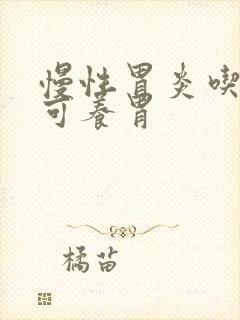 慢性胃炎喫
可养胃
橘苗